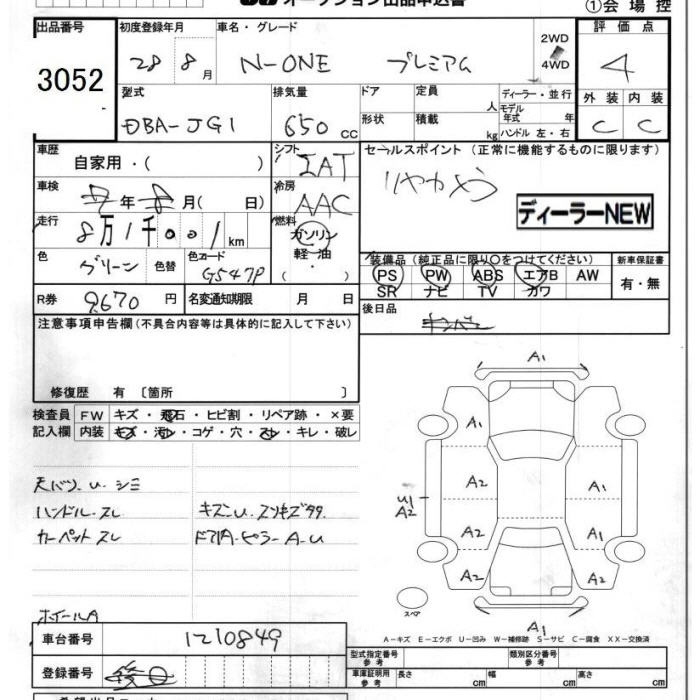 オークション出品申込書
①会場控
出品番号 3052
初度登録年月 28 8月
車名・グレード N-ONE プレミアム
2WD
4WD
評価点 4
外装 C 内装 C
型式 DBA-JG1
排気量 650 CC
ドア
形状
定員 人
積載 kg
ディーラー・並行
モデル年式 年
ハンドル 左・右
車歴 自家用・( )
シフト IAT
セールスポイント (正常に機能するものに限ります)
車検 年 月( 日)
冷房 AAC
ディーラーNEW
走行 8万1千001km
燃料 ガソリン
軽油・
( ・ )
色 グリーン 色替 色コード G547P
装備品 (純正品に限り〇をつけてください) 新車保証書
PS PW ABS エアB AW 有・無
SR ナビ TV カワ
R券 9670 円 名変通知期限 月 日
後日品
注意事項申告欄(不具合内容等は具体的に記入して下さい)
修復歴 有 〔箇所 〕
検査員 FW キズ・飛石・ヒビ割・リペア跡・×要
記入欄 内装 キズ・汚レ・コゲ・穴・スレ・キレ・破レ
天バリ.U.シミ
ハンドル.スレ
カーペット スレ
ドア内A.ピラー A-U
ホイールA
A1
A1
A2
A2
A2
U1
A2
A1
A1
A2
A1
スペア
A-キズ E-エクボ U-凹み W-補修跡 S-サビ C-腐食 XX-交換済
車台番号 1210849
登録番号
型式指定番号 参考
類別区分番号 参考
車庫証明用 参考 長さ cm 幅 cm 高さ cm